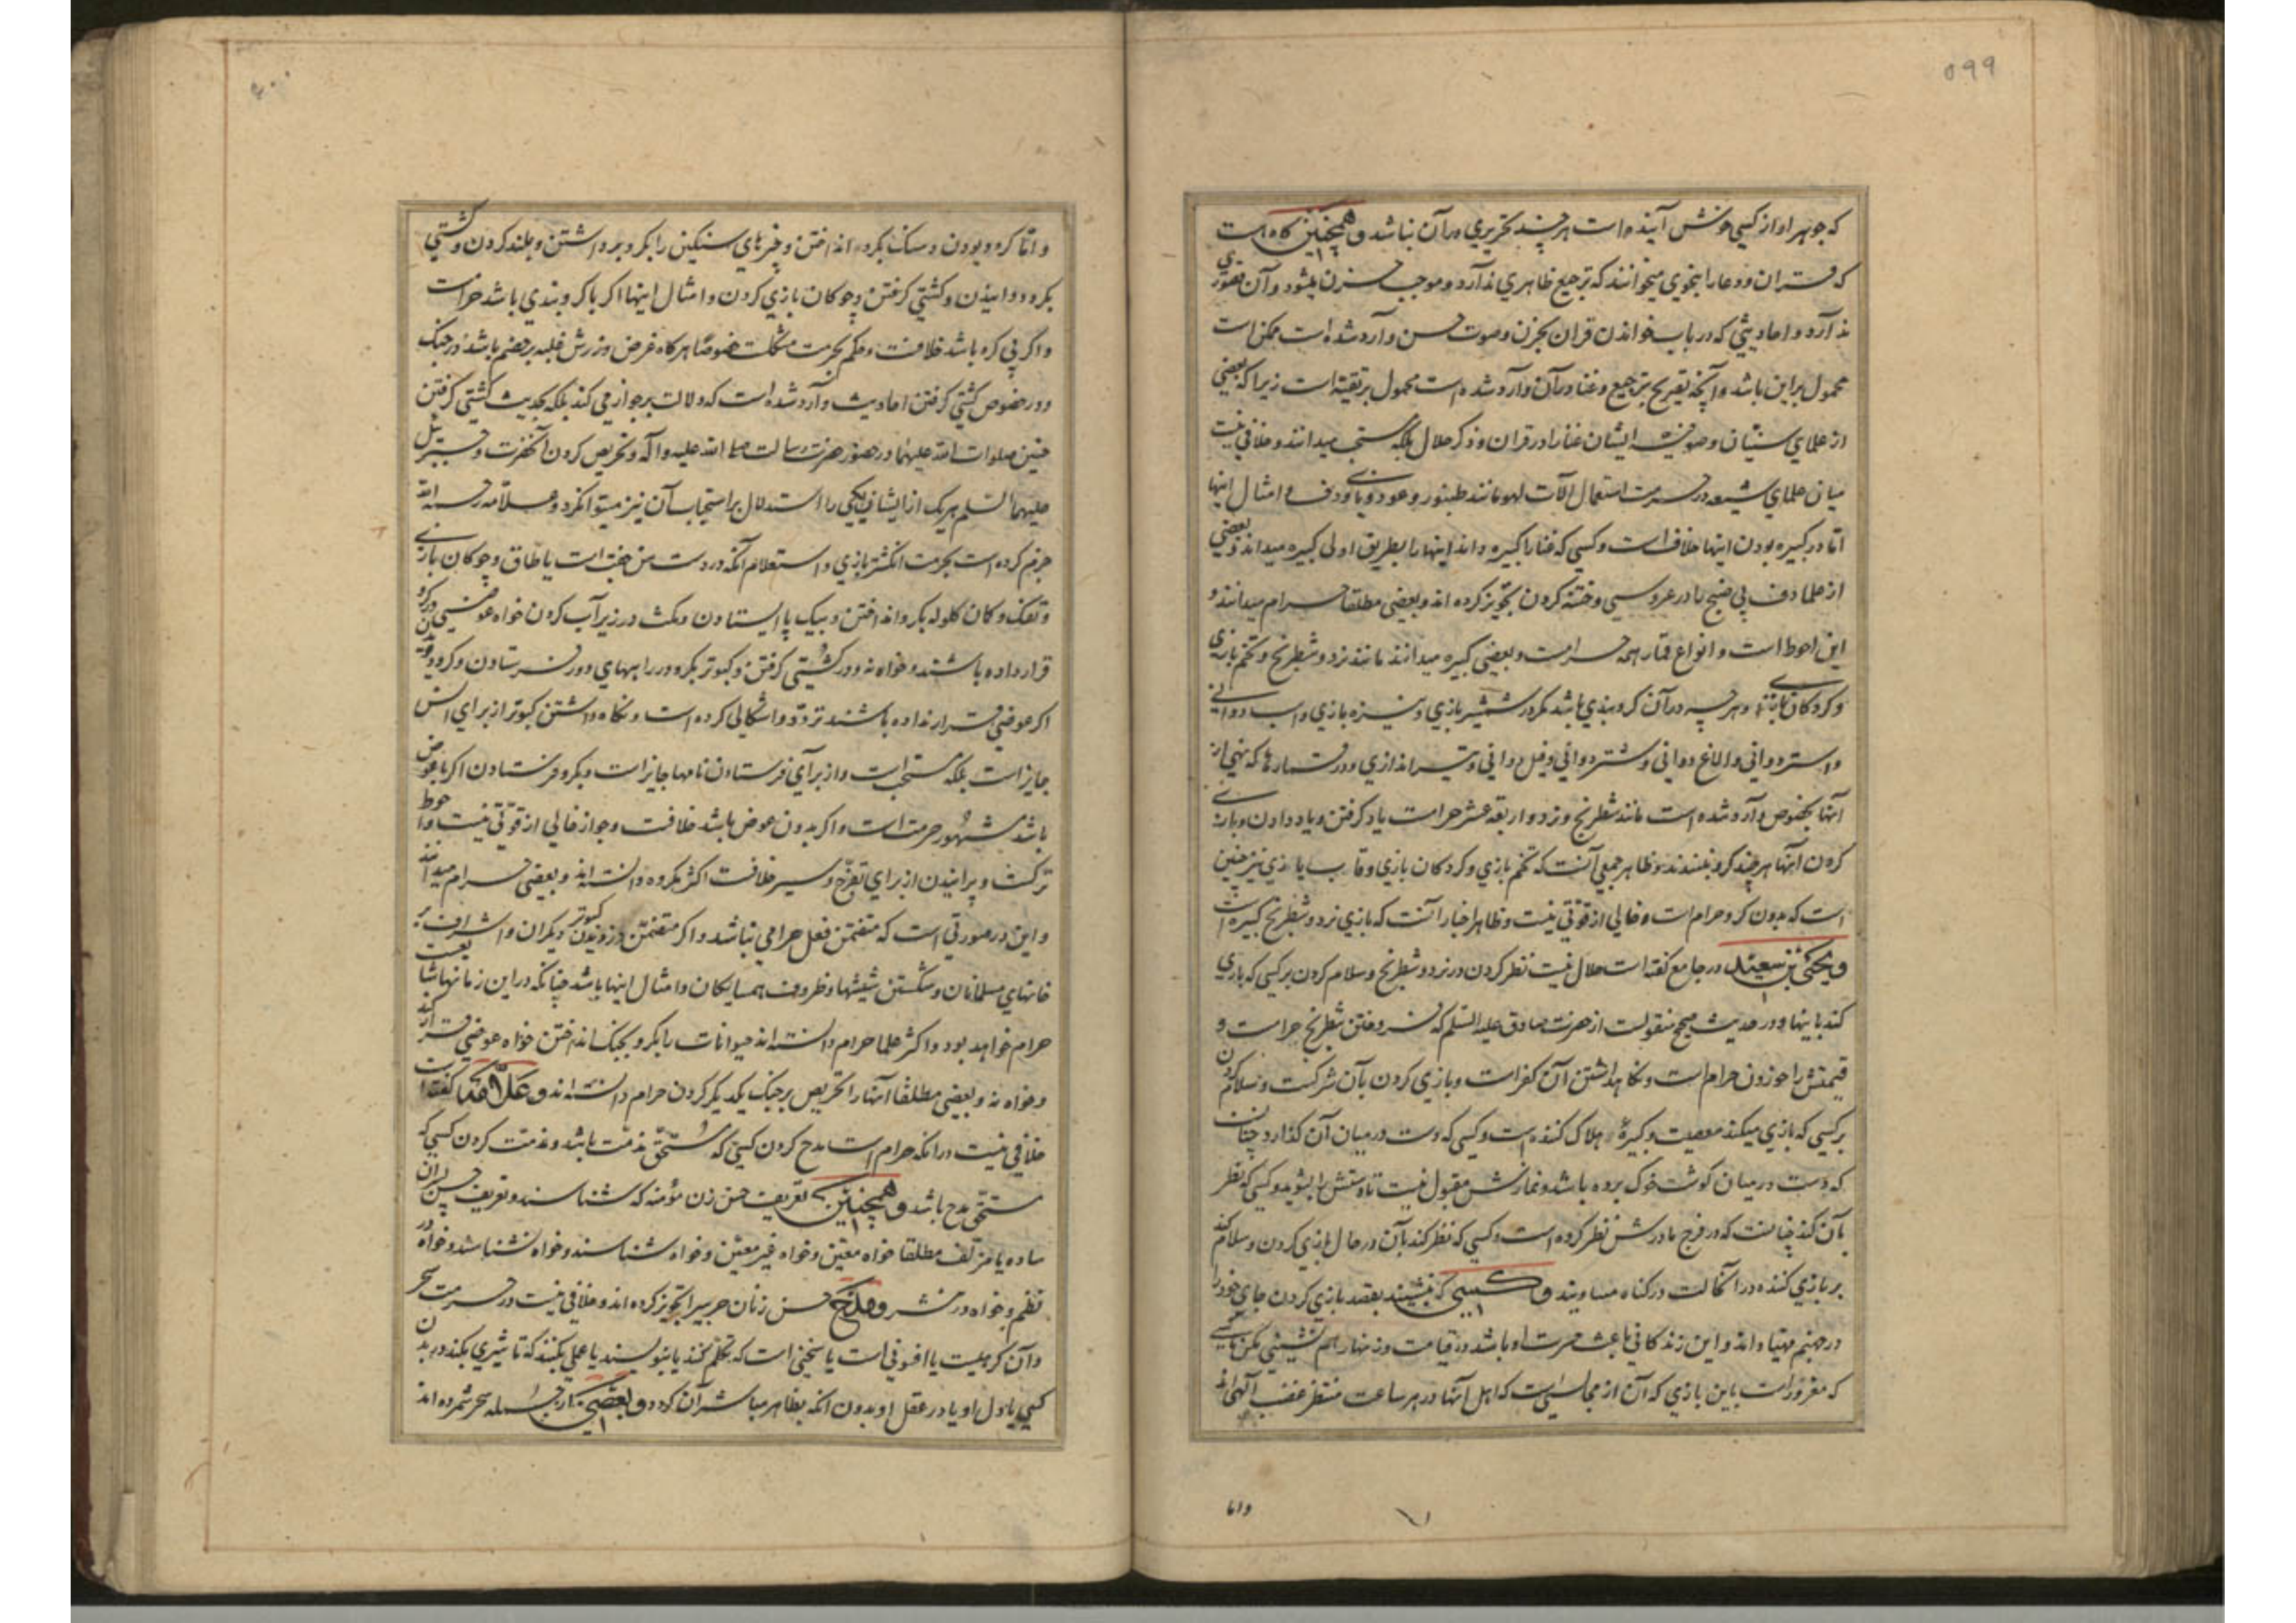 ۵۹۹
که جوهر اواز کسی خوش آینده است هر چند تحریری در آن نباشد و همچنین گاه است
که قران و دعا را بنحوی میخوانند که ترجیع ظاهری ندارد و موجب حزن میشود و آن قصوری
ندارد و احادیثی که در باب خواندن قران بحزن و صوت حسن وارد شده است ممکن است
محمول بر این باشد و آنچه تصریح بترجیع و غنا در آن وارد شده است محمول بر تقیه است زیرا که بعضی
از علمای سنیان و صوفیه ایشان غنا را در قران و ذکر حلال بلکه مستحب میدانند و خلافی نیست
میان علمای شیعه در حرمت استعمال آلات لهو مانند طنبور و عود و نای و دف و امثال اینها
اما در کبیره بودن اینها خلاف است و کسی که غنا را کبیره داند اینها را بطریق اولی کبیره میداند و بعضی
از علما دف بی صنج را در عروسی و ختنه کردن تجویز کرده اند و بعضی مطلقا حرام میدانند و
این احوط است و انواع قمار همه حرامست و بعضی کبیره میدانند مانند نرد و شطرنج و تخم بازی
و گردکان بازی و هر چه در آن گروبندی باشد مگر در شمشیر بازی و نیزه بازی و اسب دوانی
و استر دوانی و الاغ دوانی و شتر دوانی و فیل دوانی و تیر اندازی و در قمارها که نهی از
آنها بخصوص وارد شده است مانند شطرنج و نرد و اربعه عشر حرامست یاد گرفتن و یاد دادن و بازی
کردن آنها هر چند گرو نبندند و ظاهر جمعی آنست که تخم بازی و گردکان بازی و قاب بازی نیز چنین
است که بدون گرو حرام است و خالی از قوتی نیست و ظاهر اخبار آنست که بازی نرد و شطرنج کبیره است
و یحیی بن سعید در جامع گفته است حلال نیست نظر کردن در نرد و شطرنج و سلام کردن بر کسی که بازی
کند باینها و در حدیث صحیح منقولست از حضرت صادق علیه السلم که فروختن شطرنج حرامست و
قیمتش را خوردن حرام است و نگاهداشتن آن کفر است و بازی کردن بآن شرکست و سلام کردن
بر کسی که بازی میکند معصیت و کبیرهٔ هلاک کننده است و کسی که دست در میان آن گذارد چنان است
که دست در میان گوشت خوک برده باشد و نمازش مقبول نیست تا دستش را بشوید و کسی که نظر
بآن کند چنانست که در فرج مادرش نظر کرده است و کسی که نظر کند بآن در حال بازی کردن و سلام کند
بر بازی کننده در آنحالت در گناه مساویند و کسی که بنشیند بقصد بازی کردن جای خود را
در جهنم مهیا داند و این زندگانی باعث حسرت او باشد در قیامت و زنهار هم نشینی مکن با کسی
که مغرور است باین بازی که آن از مجالسی است که اهل آنها در هر ساعت منتظر غضب الهی اند
واما
۶۰۰
و اما گرو بودن و سنگ بگرو انداختن و چیزهای سنگین را بگرو برداشتن و بلند کردن و کشتی
بگرو دوانیدن و کشتی گرفتن و چوکان بازی کردن و امثال اینها اگر با گروبندی باشد حرامست
و اگر بی گرو باشد خلافست و حکم بحرمت مشکلست خصوصا هرگاه غرض ورزش غلبه بر خصم باشد در جنگ
و در خصوص کشتی گرفتن احادیث وارد شده است که دلالت بر جواز می کند بلکه بحدیث کشتی گرفتن
حسنین صلوات الله علیهما در حضور حضرت رسالت صلی الله علیه و آله و تحریص کردن آنحضرت و جبرئیل
علیهما السلم هر یک از ایشان یکی را استدلال بر استحباب آن نیز میتوان کرد و علامه رحمه الله
جزم کرده است بحرمت انگشتر بازی و استعلام آنکه در دست من جفت است یا طاق و چوکان بازی
و تفنک و کمان گلوله بگرو انداختن و بیک پا ایستادن و مکث در زیر آب کردن خواه عوضی در گرو
قرار داده باشند و خواه نه و در کشتی گرفتن و کبوتر بگرو در راههای دور فرستادن و گرو دویدن
اگر عوضی قرار نداده باشند تردد و اشکالی کرده است و نگاه داشتن کبوتر از برای انس
جایز است بلکه مستحب است و از برای فرستادن نامها جایز است و بگرو فرستادن اگر با عوض
باشد مشهور حرمت است و اگر بدون عوض باشد خلافست و جواز خالی از قوتی نیست و احوط
ترکست و پرانیدن از برای تفرج و سیر خلافست اکثر مکروه دانسته اند و بعضی حرام میدانند
و این در صورتی است که متضمن فعل حرامی نباشد و اگر متضمن دزدیدن کبوتر دیگران و اشراف بر
خانهای مسلمانان و شکستن شیشها و ظروف همسایگان و امثال اینها باشد چنانکه در این زمانها شایعست
حرام خواهد بود و اکثر علما حرام دانسته اند حیوانات را بگرو بجنگ انداختن خواه عوضی قرار کند
و خواه نه و بعضی مطلقا آنها را تحریص بر جنگ یکدیگر کردن حرام دانسته اند و علامه گفته است
خلافی نیست در انکه حرام است مدح کردن کسی که مستحق مذمت باشد و مذمت کردن کسی که
مستحق مدح باشد و همچنین تعریف حسن زن مؤمنه که شناسند و تعریف حسن پسران
ساده یا مزلف مطلقا خواه معین و خواه غیر معین و خواه شناسند و خواه نشناسند و خواه در
نظم و خواه در نثر و مدح حسن زنان حربی را تجویز کرده اند و خلافی نیست در حرمت سحر
و آن گرهیست یا افسونی است یا سخنی است که تکلم کند یا بنویسد یا عملی بکند که تاثیری بکند در بدن
کسی یا دل او یا در عقل او بدون انکه بظاهر مباشر آن گردد و بعضی از جمله سحر شمرده اند